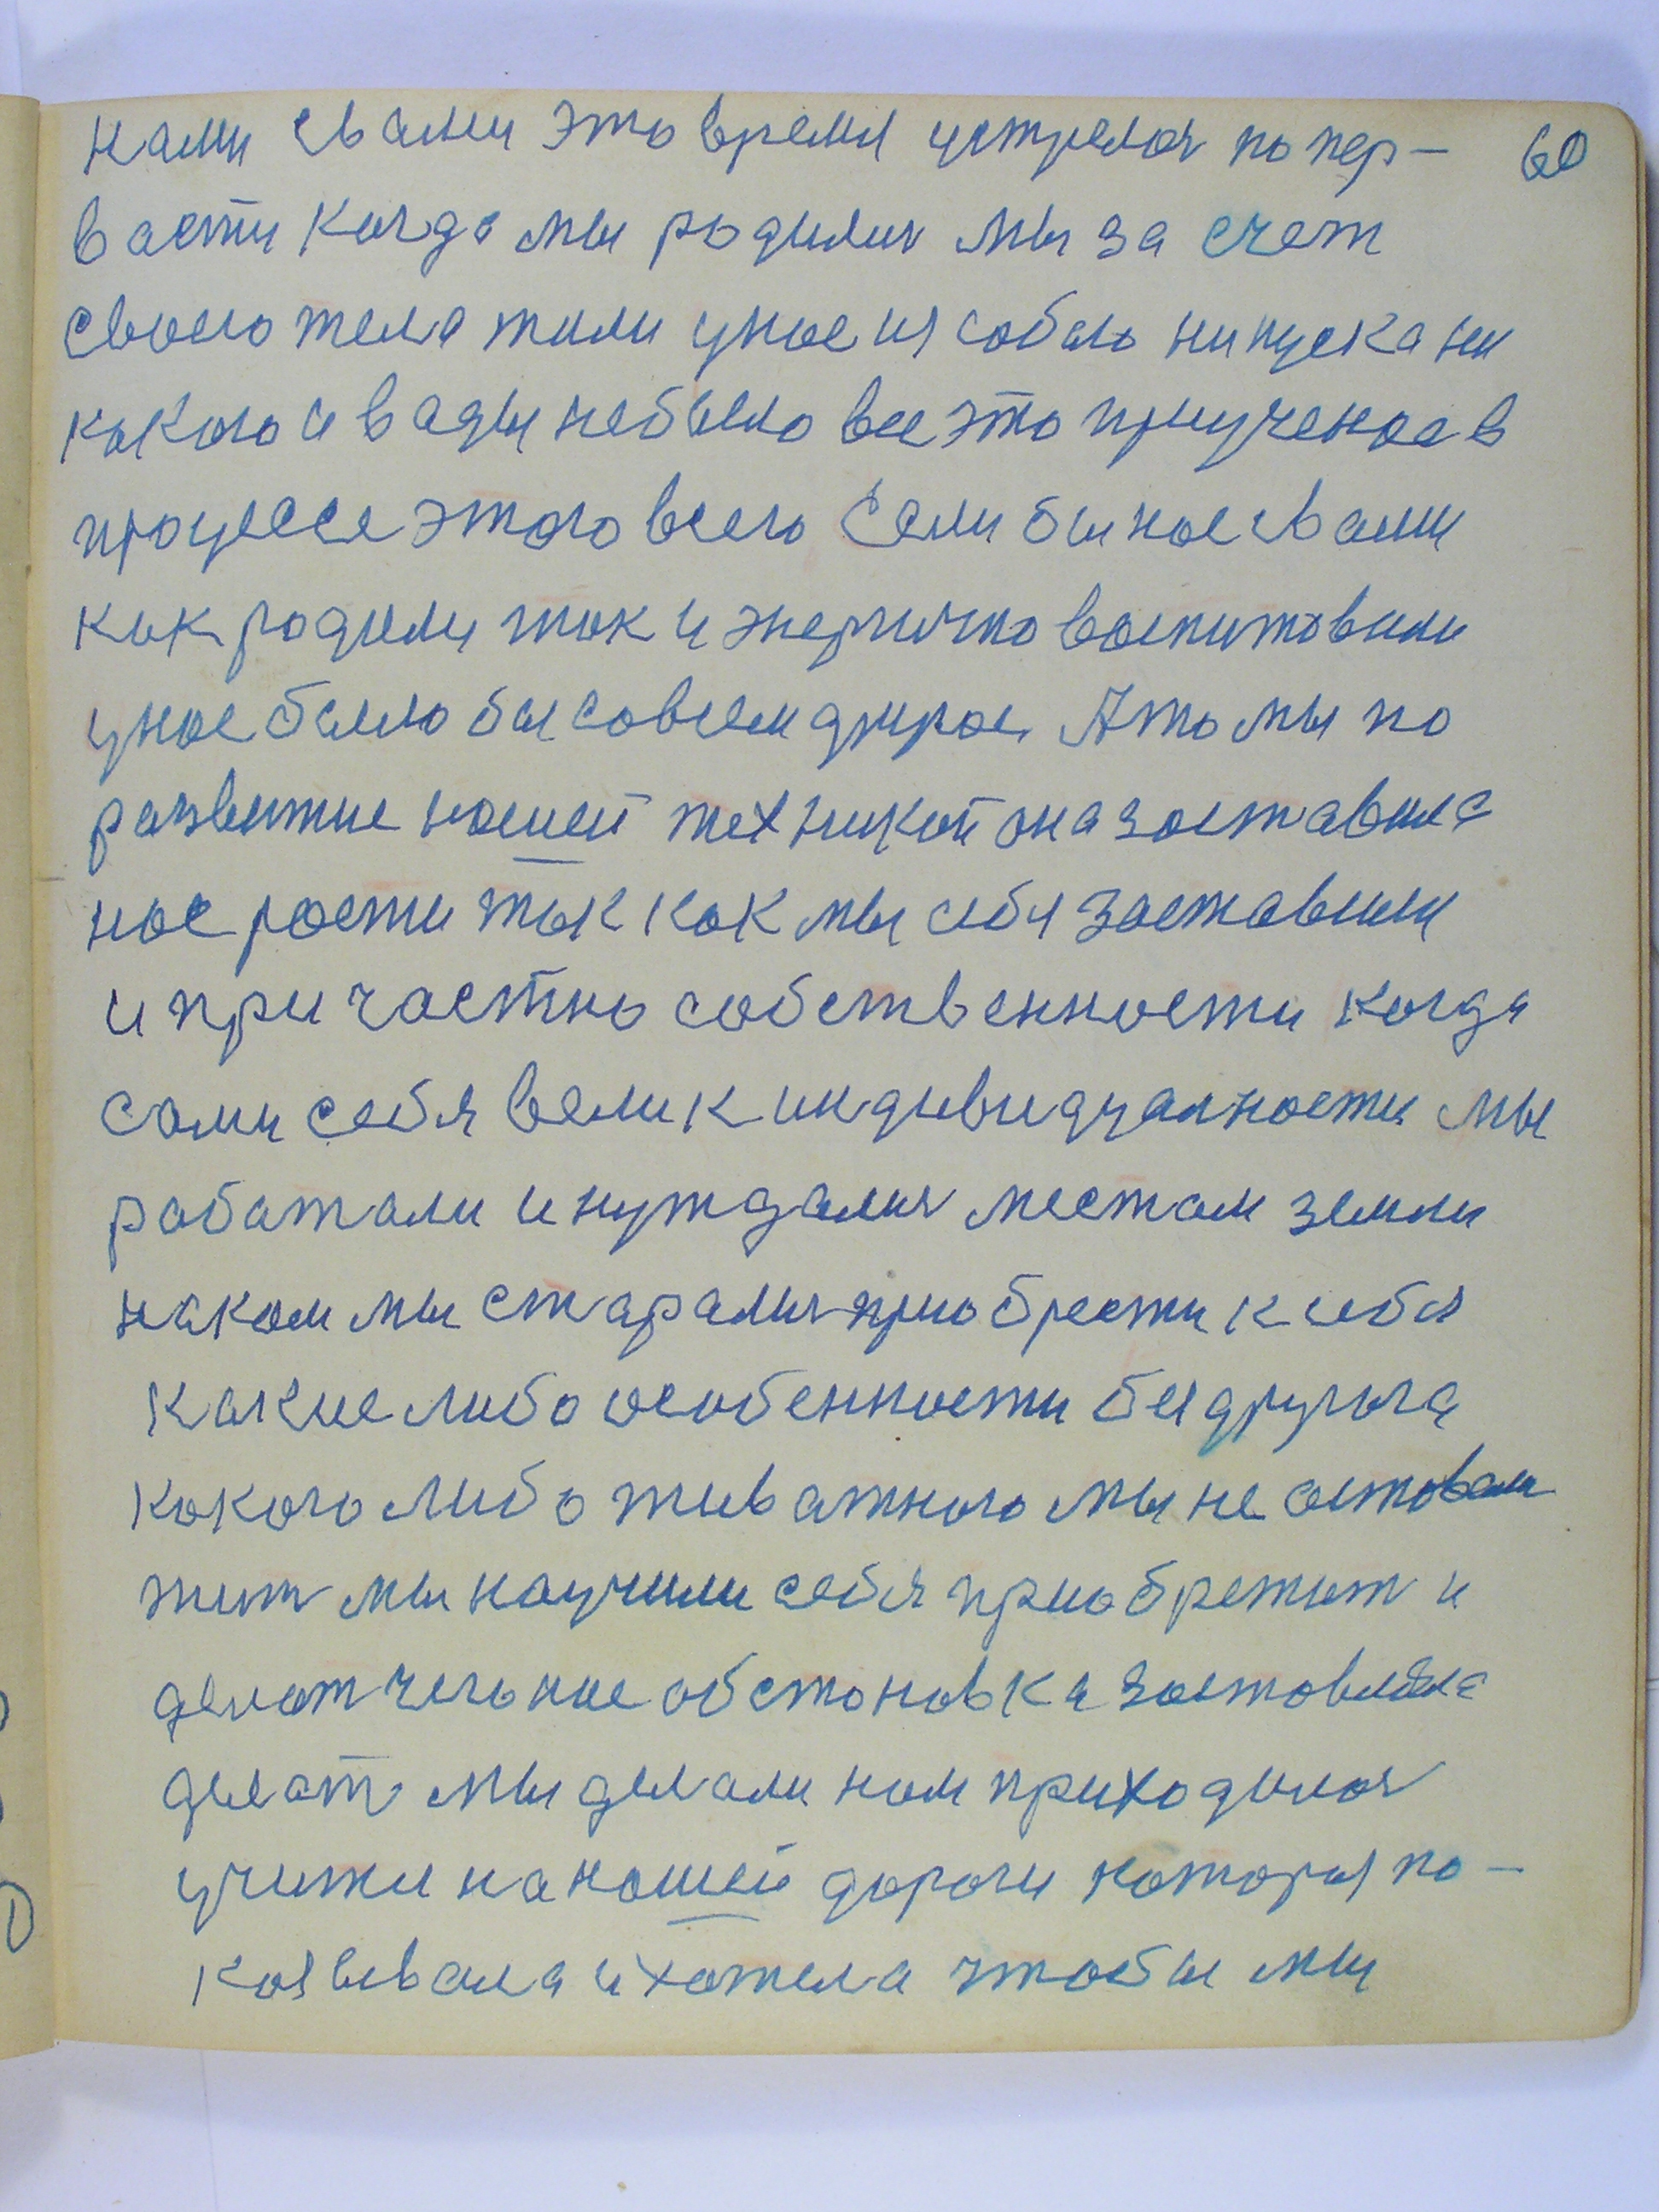 нами свами это время устрелоя по пер- 60
васти когда мы родилия мы за счет
своего тела жили унас из собою ни куска ни
какого и вады небыло все это приученое в
процессе этого всего Если бы нас свами
как родили так и энергично воспитовали
унас было бы совсем другое. А то мы по
развитие нашей техникой она заставила
нас рости так как мы себя заставили
и при частно собственности когда
сами себя вели к индивидуалности мы
работали и нуждалия местам земли
на ком мы старалия приобрести к себя
какие либо особенности без другога
кокого либо живатного мы не оставали
жит мы научили себя приобретат и
делат чего нас обстановка заставляла
делат мы делали нам приходилоя
учитя на нашей дороги которыя по-
казывала и хотела чтобы мы